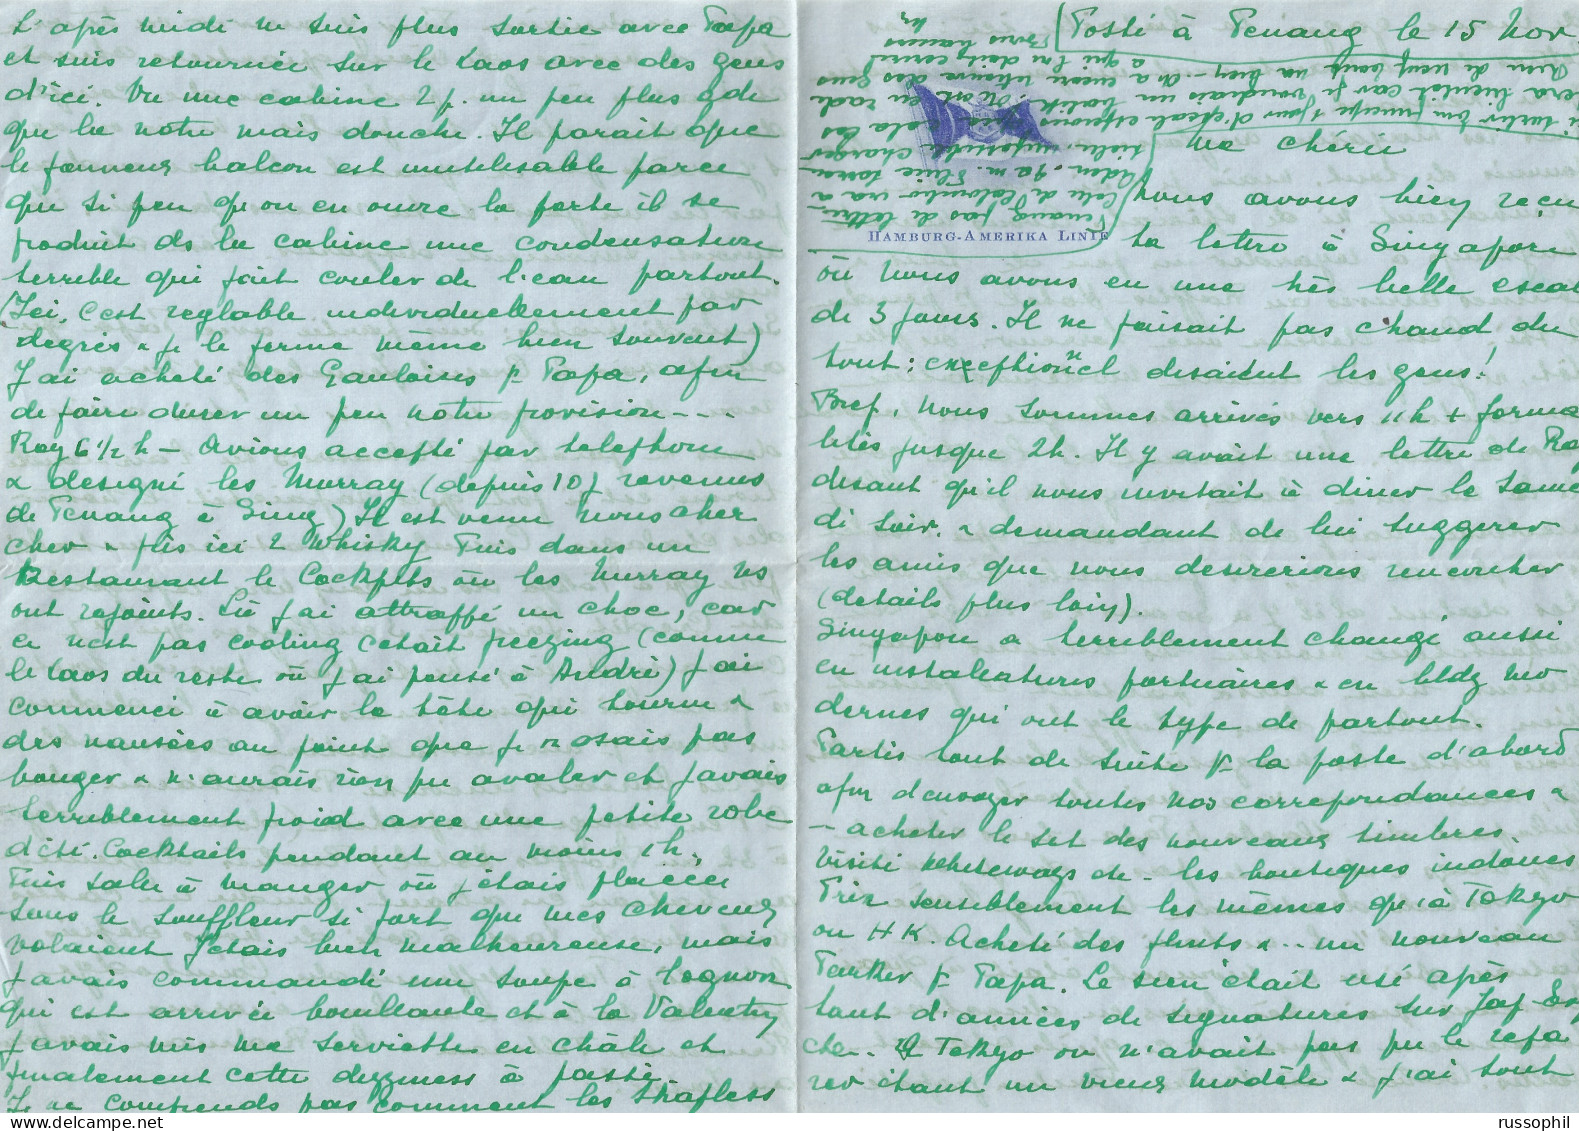 Posté à Penang le 15 Nov.
Ma chérie
HAMBURG-AMERIKA LINIE
Nous avons bien reçu
ta lettre à Singapore
où nous avons eu une très belle escal
de 3 jours. Il ne faisait pas chaud du
tout: exceptionnel disaient les gens!
Bref, nous sommes arrivés vers 11h + forma
lités jusque 2h. Il y avait une lettre de Ray
disant qu'il nous invitait à diner le Same
di soir, & demandant de lui suggerer
les amis que nous desirerions rencontrer
(details plus loin).
Singapore a terriblement changé aussi
en installations portuaires & en bldg mo
dernes qui ont le type de partout.
Partis tout de suite pr la poste d'abord
afin d'envoyer toutes nos correspondances &
- acheter le set des nouveaux timbres.
Visité Whiteways de - les boutiques indoues
Prix sensiblement les mêmes qu'à Tokyo
ou HK. Acheté des fruits & .. un nouveau
Parker pr Papa. Le sien était usé après
tant d'années de signatures sur
A Tokyo on n'avait pas pu le répa
rer étant un vieux modèle & j'ai tout
L'après midi ne suis plus sortie avec Papa
et suis retournée sur le Laos avec des gens
d'ici. Vu une cabine 2 p. un peu plus gde
que la notre mais douche. Il parait que
le fameux balcon est inutilisable parce
que si peu qu'on en ouvre la porte il se
produit ds la cabine une condensation
terrible qui fait couler de l'eau partout.
(Ici, c'est reglable individuellement par
degrés & je le ferme même bien souvent)
J'ai acheté des Gauloises pr Papa, afin
de faire durer un peu notre provision - - -
Ray 6 1/2 h - Avions accepté par telephone
& designé les Murray (depuis 10 j revenus
de Penang à Sing) Il est venu nous cher
cher & pris ici 2 Whisky Puis dans un
Restaurant le Cockpits où les Murray ns
ont rejoints. Là j'ai attrappé un choc, car
ce n'est pas cooling c'etait freezing (comme
le Laos du reste où j'ai pensé à André) J'ai
commencé à avoir la tête qui tourne &
des nausées au point que je n'osais pas
bouger & n'aurais rien pu avaler et j'avais
terriblement froid avec une petite robe
d'été. Cocktails pendant au moins 1h.
Puis salle à manger où j'étais placée
sous le souffleur si fort que mes cheveux
volaient J'étais bien malheureuse, mais
j'avais commandé une soupe à l'ognon
qui est arrivée bouillante et à la Valentin
j'avais mis ma serviette en châle et
finalement cette dizziness a passé.
Je ne comprends pas comment les strapless